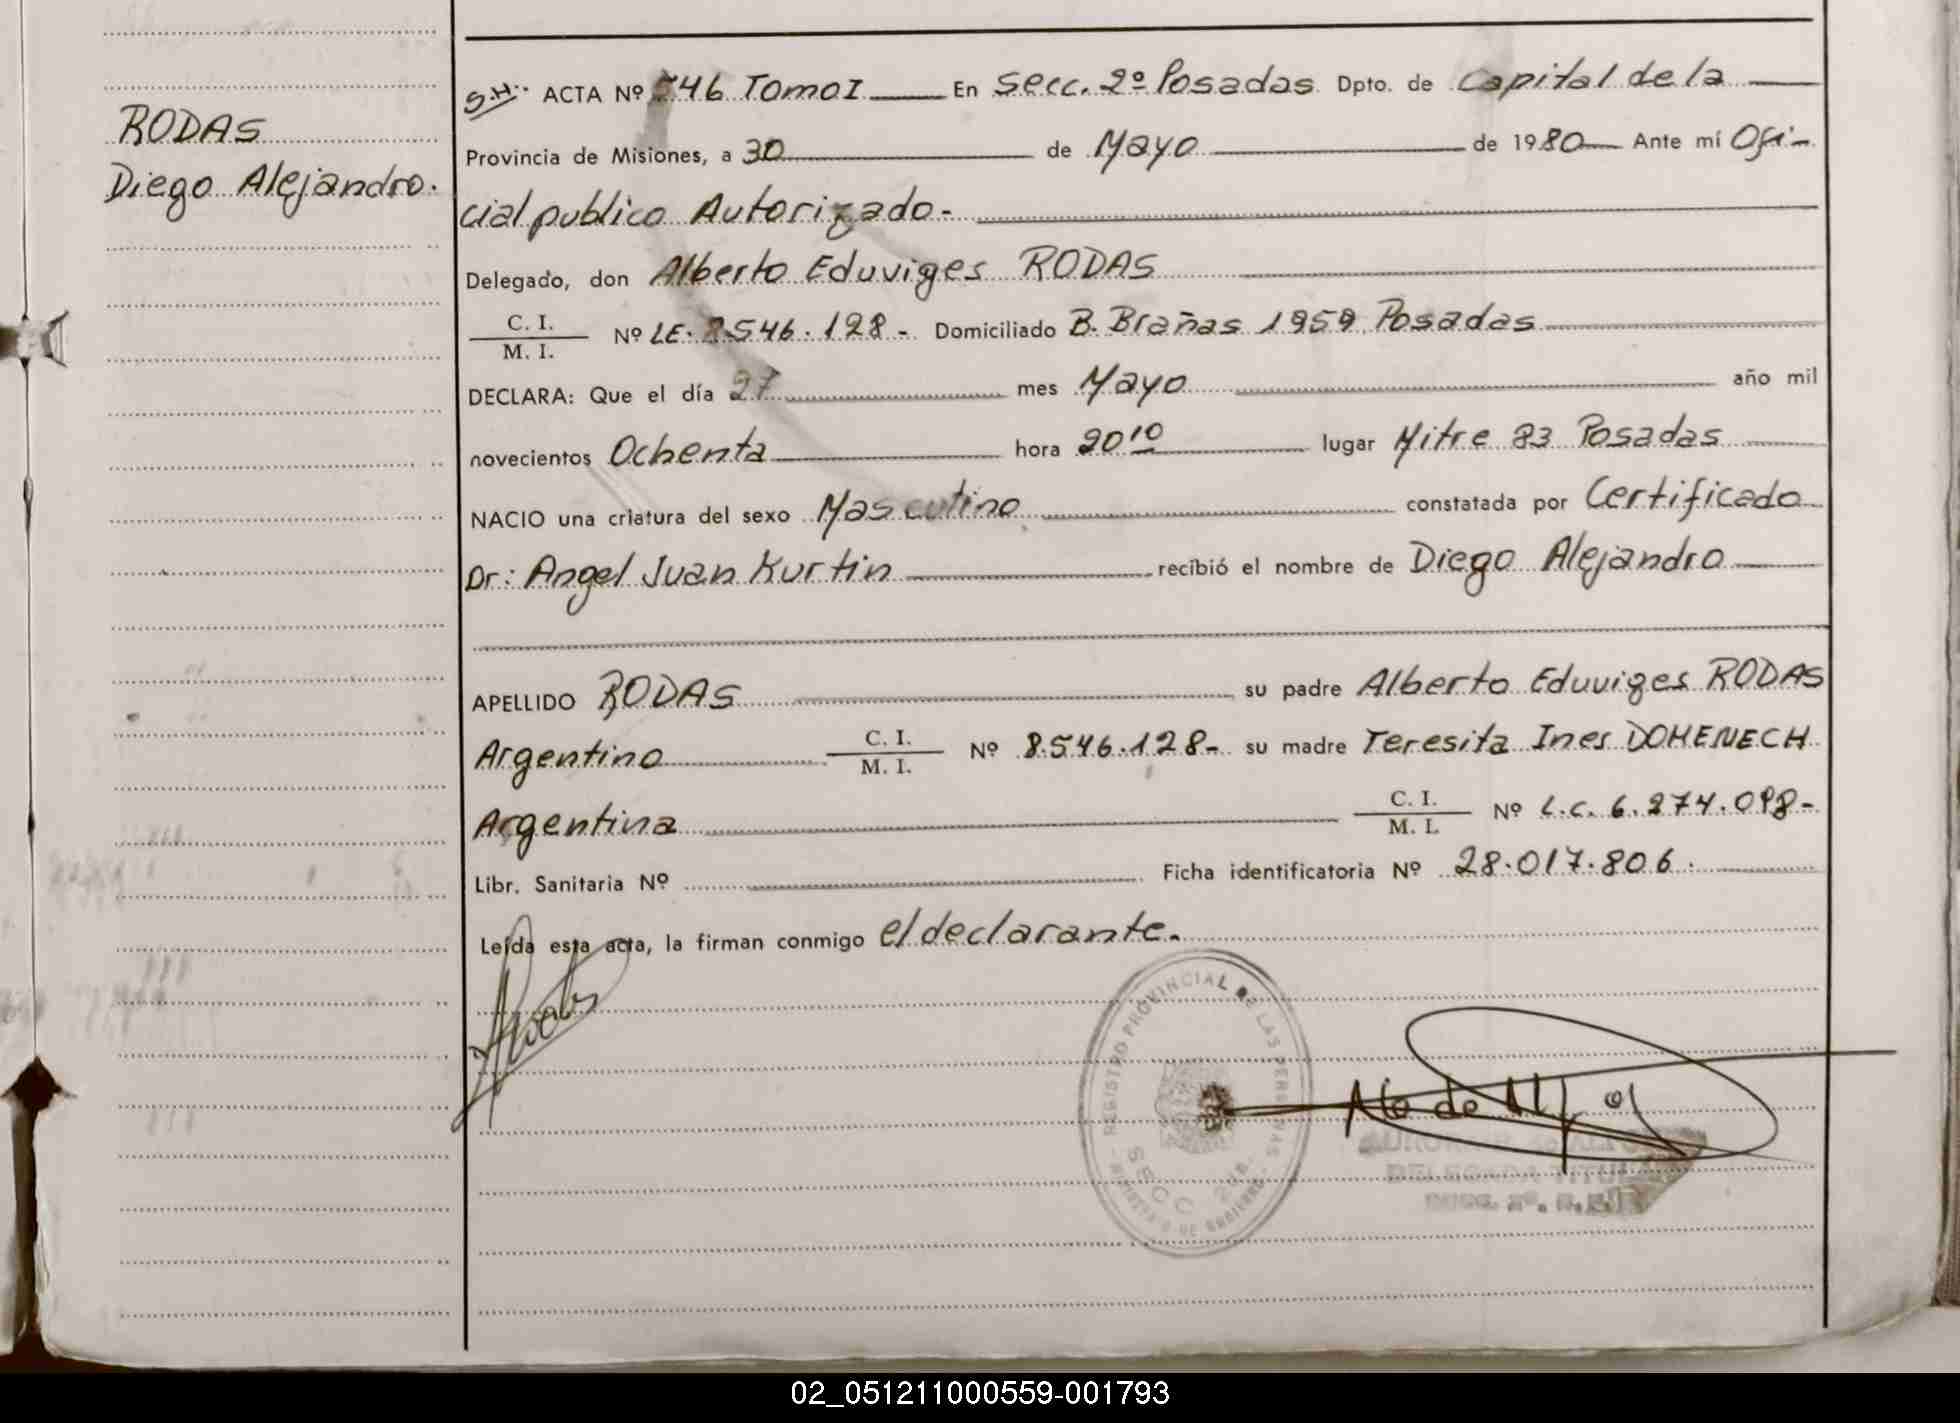 RODAS
Diego Alejandro.
S.H. ACTA Nº 546 Tomo I En Secc. 2º Posadas Dpto. de Capital de la
Provincia de Misiones, a 30 de Mayo de 1980 Ante mí Ofi-
cial publico Autorizado-
Delegado, don Alberto Eduviges RODAS
C. I.
M. I.
Nº LE. 8.546.128- Domiciliado B. Brañas 1959 Posadas
DECLARA: Que el día 27 mes Mayo año mil
novecientos Ochenta hora 20 10 lugar Mitre 83 Posadas
NACIO una criatura del sexo Masculino constatada por Certificado
Dr: Angel Juan Kurtin recibió el nombre de Diego Alejandro
APELLIDO RODAS su padre Alberto Eduviges RODAS
Argentino C. I. M. I. Nº 8.546.128- su madre Teresita Ines DOMENECH
Argentina C. I. M. I. Nº L.C. 6.274.098-
Libr. Sanitaria Nº Ficha identificatoria Nº 28.017.806.
Leída esta acta, la firman conmigo el declarante.
REGISTRO PROVINCIAL DE LAS PERSONAS
SECC 2da.
DELEGADA TITULAR
SECC. 2ª.
02_051211000559-001793